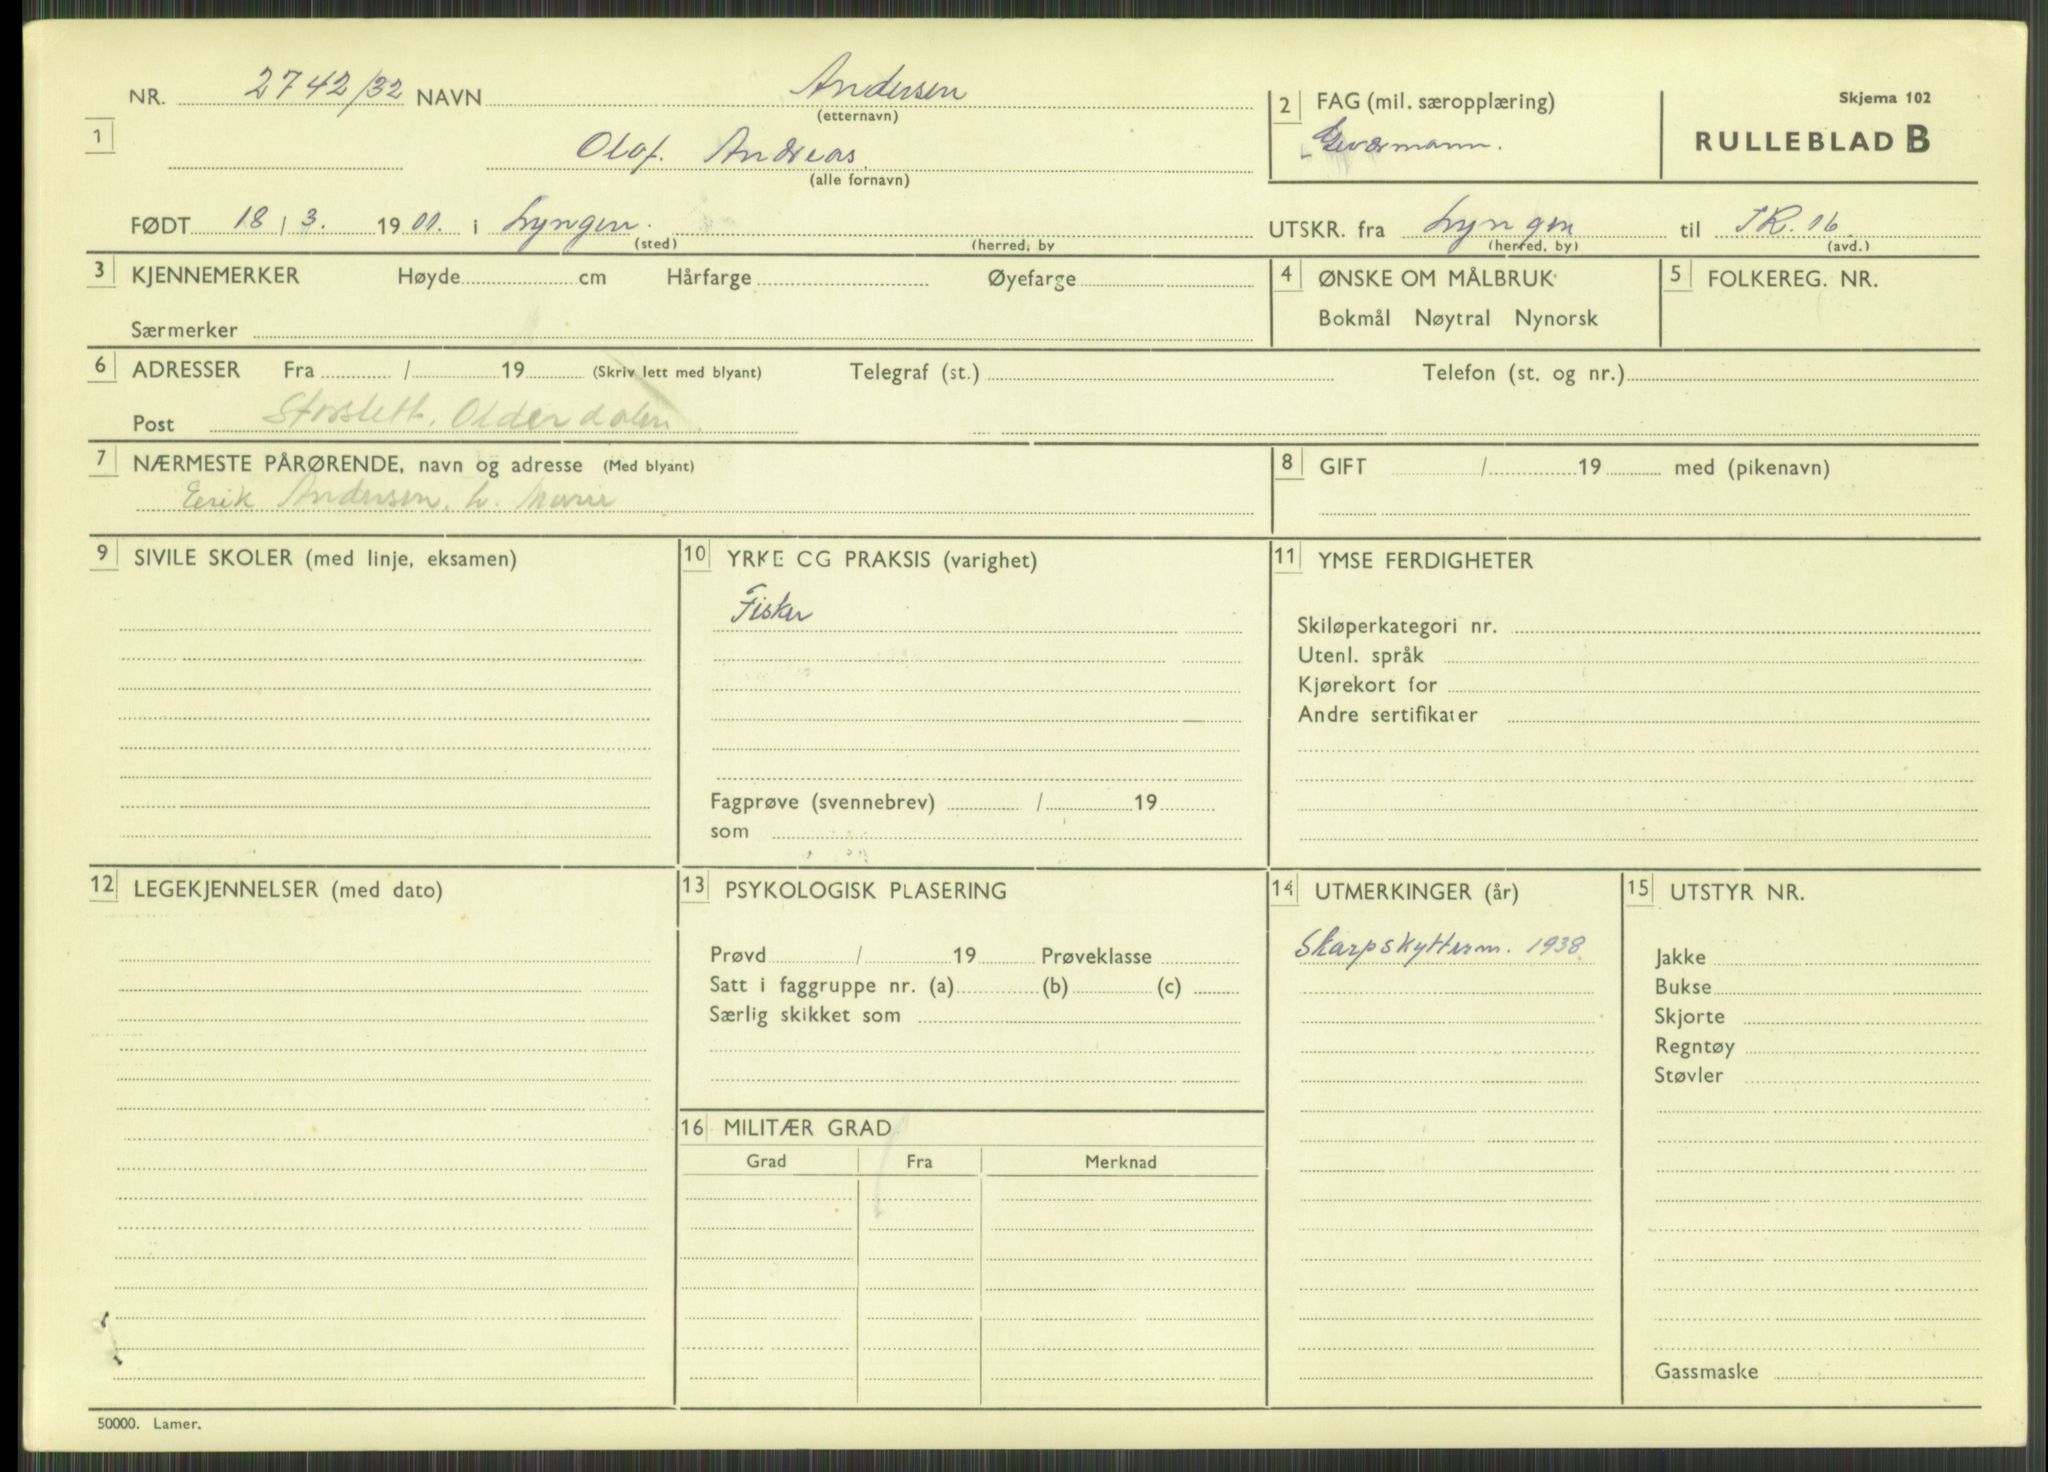 NR. 2742/32 NAVN Andersen
(etternavn)
1
Olaf. Andreas.
(alle fornavn)
2 FAG (mil. særopplæring)
Geværmann.
Skjema 102
RULLEBLAD B
FØDT 18 / 3. 19 i Lyngen.
(sted) (herred, by
UTSKR. fra Lyngen til IR. 16
(herred, by) (avd.)
3 KJENNEMERKER Høyde cm Hårfarge Øyefarge
Særmerker
4 ØNSKE OM MÅLBRUK
Bokmål Nøytral Nynorsk
5 FOLKEREG. NR.
6 ADRESSER Fra / 19 (Skriv lett med blyant) Telegraf (st.) Telefon (st. og nr.)
Post Storslett. Olderdalen
7 NÆRMESTE PÅRØRENDE, navn og adresse (Med blyant)
Erik Andersen. h. Marie
8 GIFT / 19 med (pikenavn)
9 SIVILE SKOLER (med linje, eksamen)
10 YRKE CG PRAKSIS (varighet)
Fisker
Fagprøve (svennebrev) / 19
som
11 YMSE FERDIGHETER
Skiløperkategori nr.
Utenl. språk
Kjørekort for
Andre sertifikater
12 LEGEKJENNELSER (med dato)
13 PSYKOLOGISK PLASERING
Prøvd / 19 Prøveklasse
Satt i faggruppe nr. (a) (b) (c)
Særlig skikket som
14 UTMERKINGER (år)
Skarpskytterm. 1938.
15 UTSTYR NR.
Jakke
Bukse
Skjorte
Regntøy
Støvler
Gassmaske
16 MILITÆR GRAD
Grad Fra Merknad
50000. Lamer.